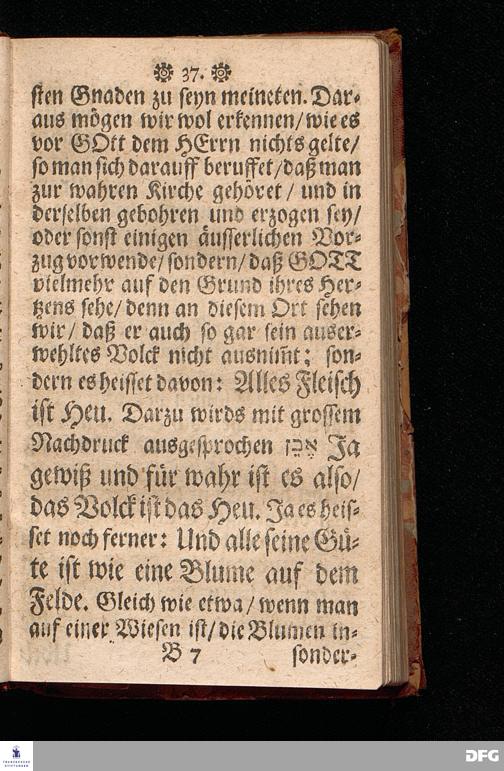 37.
sten Gnaden zu seyn meineten. Dar-
aus mögen wir wol erkennen/ wie es
vor GOtt dem HErrn nichts gelte/
so man sich darauff beruffet/ daß man
zur wahren Kirche gehöret / und in
derselben gebohren und erzogen sey/
oder sonst einigen äusserlichen Vor-
zug vorwende/ sondern/ daß GOTT
vielmehr auf den Grund ihres Her-
tzens sehe/ denn an diesem Ort sehen
wir/ daß er auch so gar sein auser-
wehltes Volck nicht ausnim̃t; son-
dern es heisset davon: Alles Fleisch
ist Heu. Darzu wirds mit grossem
Nachdruck ausgesprochen אָכֵן Ja
gewiß und für wahr ist es also/
das Volck ist das Heu. Ja es heis-
set noch ferner: Und alle seine Gü-
te ist wie eine Blume auf dem
Felde. Gleich wie etwa/ wenn man
auf einer Wiesen ist/ die Blumen in-
B 7 sonder-
FRANCKESCHE STIFTUNGEN
DFG